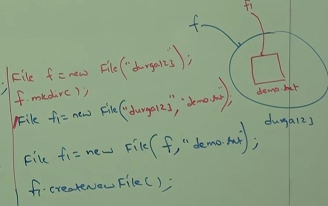 File f = new File("durga123");
f.mkdir();
File f1 = new File("durga123", "demo.txt");
File f1 = new File(f, "demo.txt");
f1.createNewFile();
f
f1
demo.txt
durga123